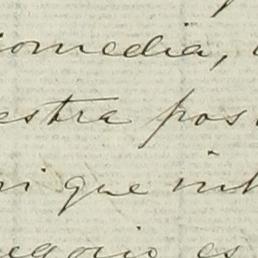 comedia,
estra pos
ni que inh
egorio es